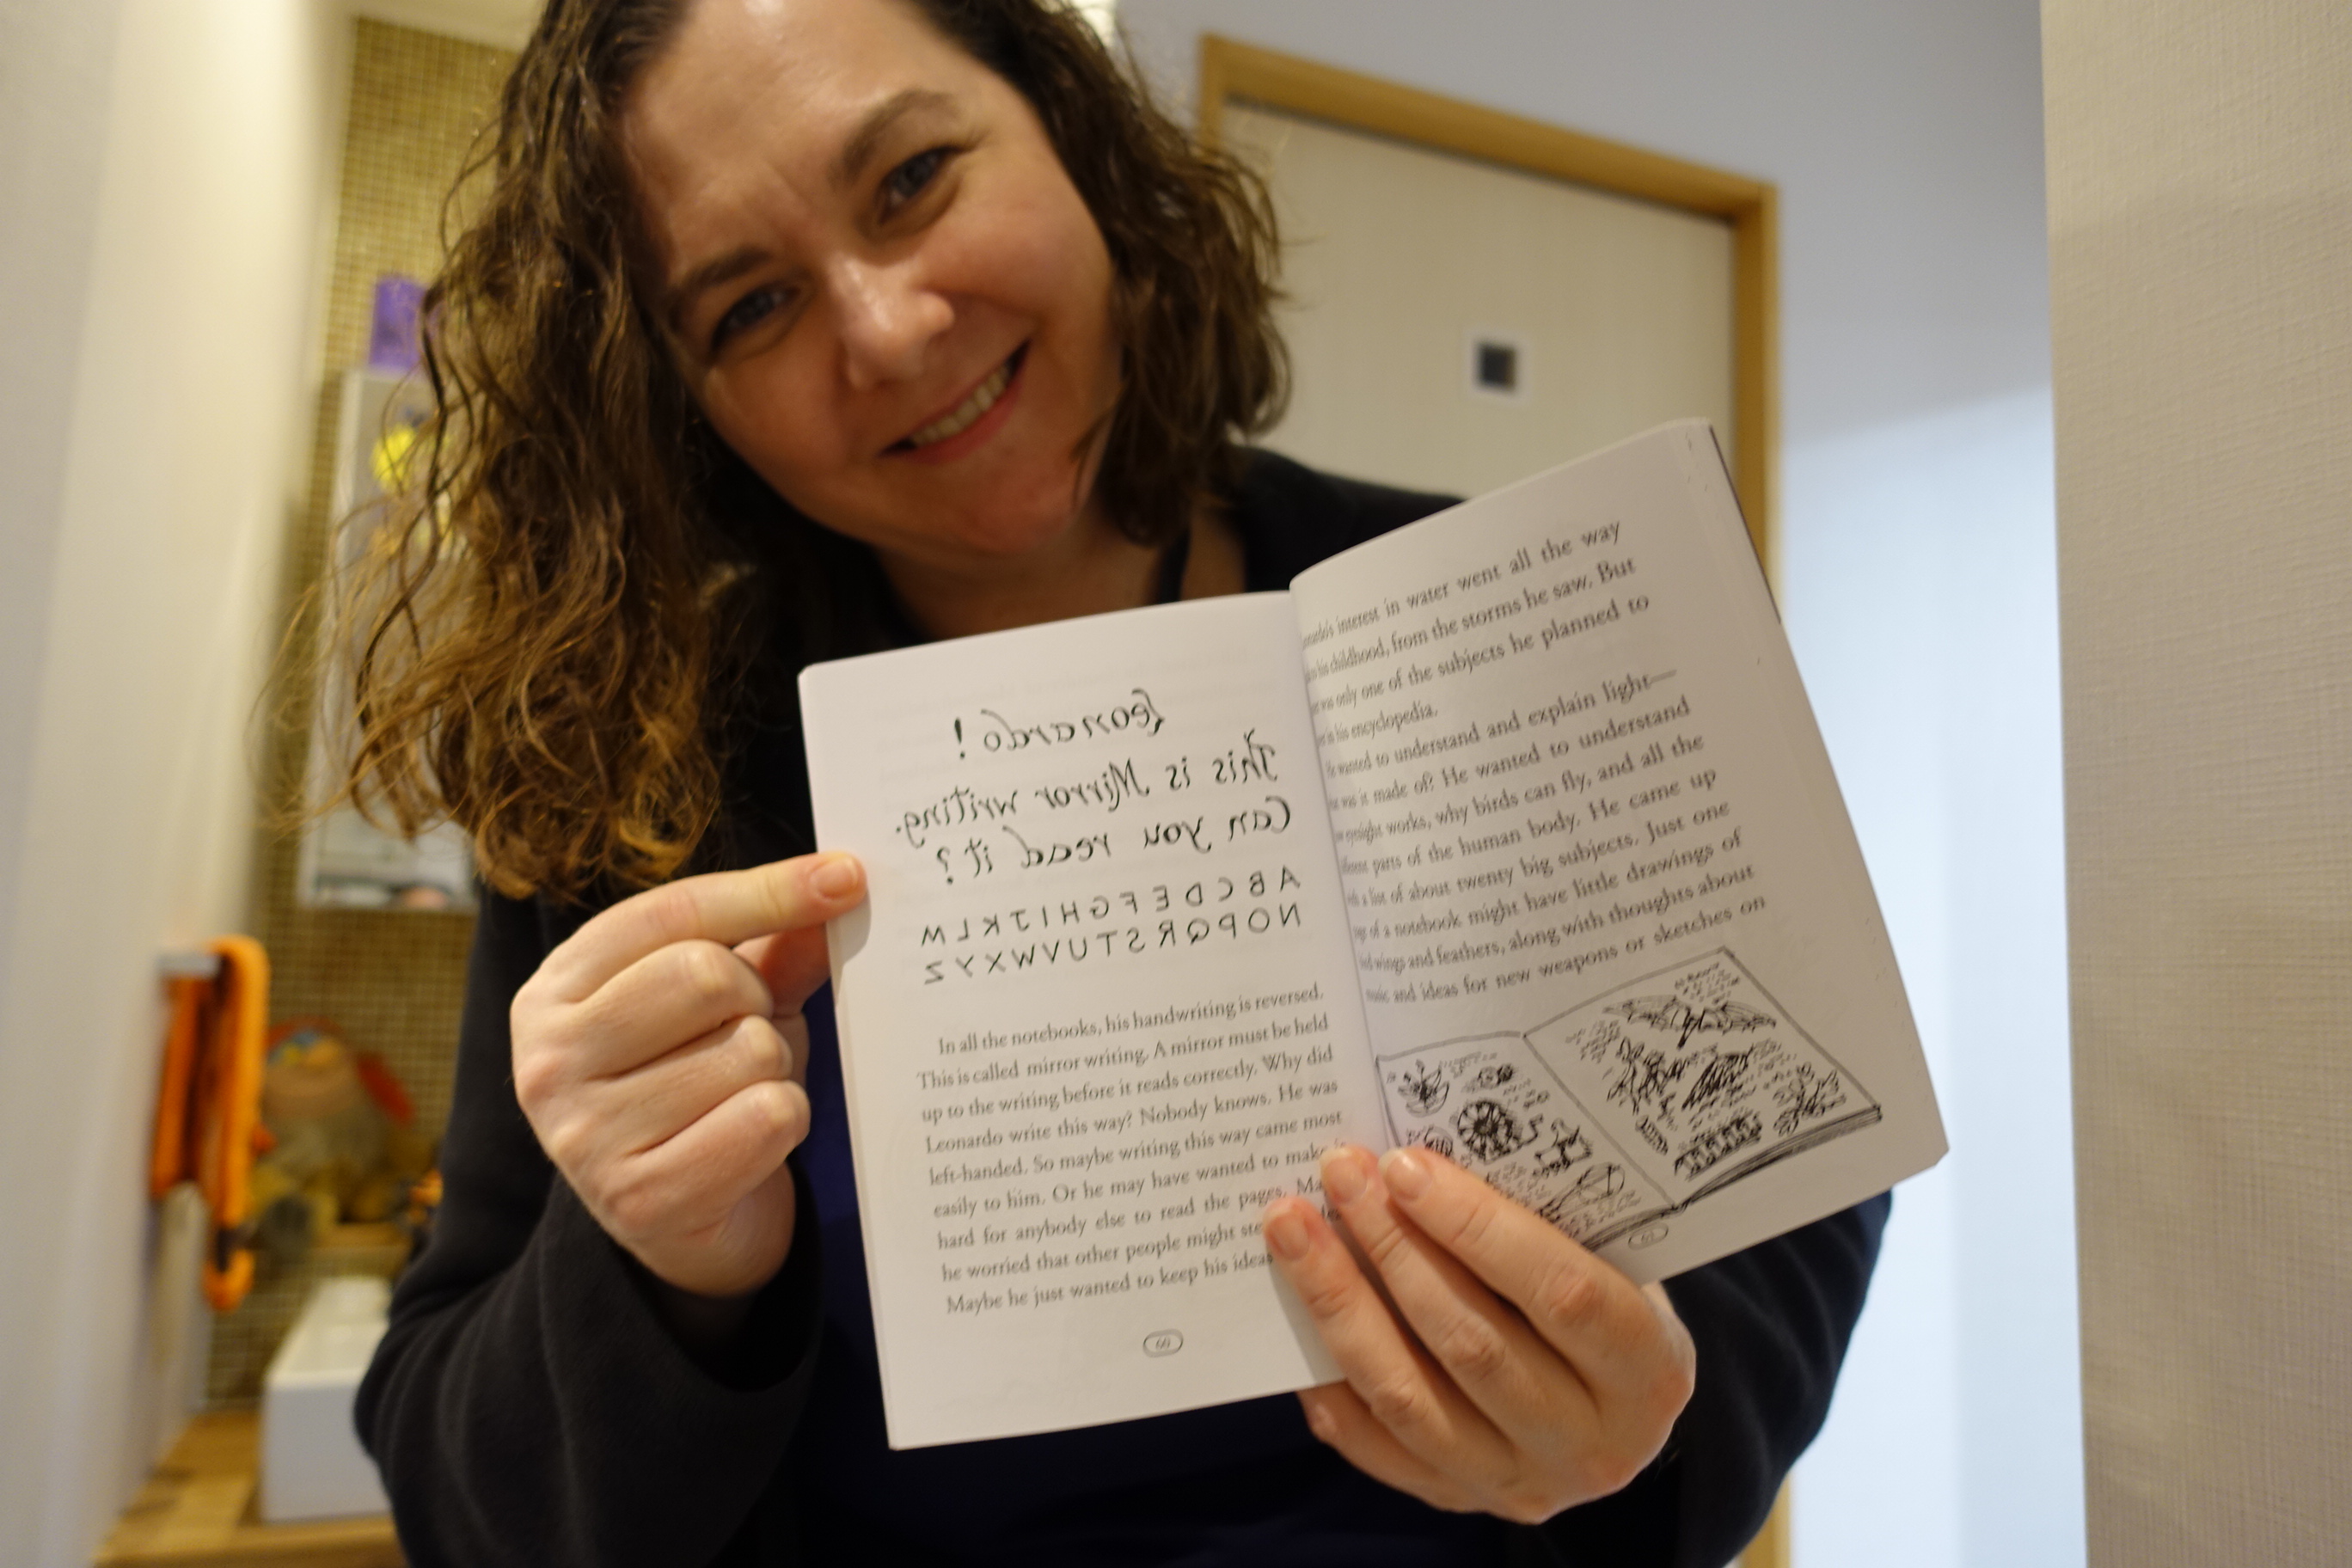 Leonardo!
This is Mirror writing.
Can you read it?
A B C D E F G H I J K L M
N O P Q R S T U V W X Y Z
In all the notebooks, his handwriting is reversed.
This is called mirror writing. A mirror must be held
up to the writing before it reads correctly. Why did
Leonardo write this way? Nobody knows. He was
left-handed. So maybe writing this way came most
easily to him. Or he may have wanted to make
hard for anybody else to read the pages.
he worried that other people might
Maybe he just wanted to keep his ideas
60
interest in water went all the way
his childhood, from the storms he saw. But
was only one of the subjects he planned to
his encyclopedia.
wanted to understand and explain light—
was it made of? He wanted to understand
works, why birds can fly, and all the
parts of the human body. He came up
a list of about twenty big subjects. Just one
of a notebook might have little drawings of
wings and feathers, along with thoughts about
and ideas for new weapons or sketches on